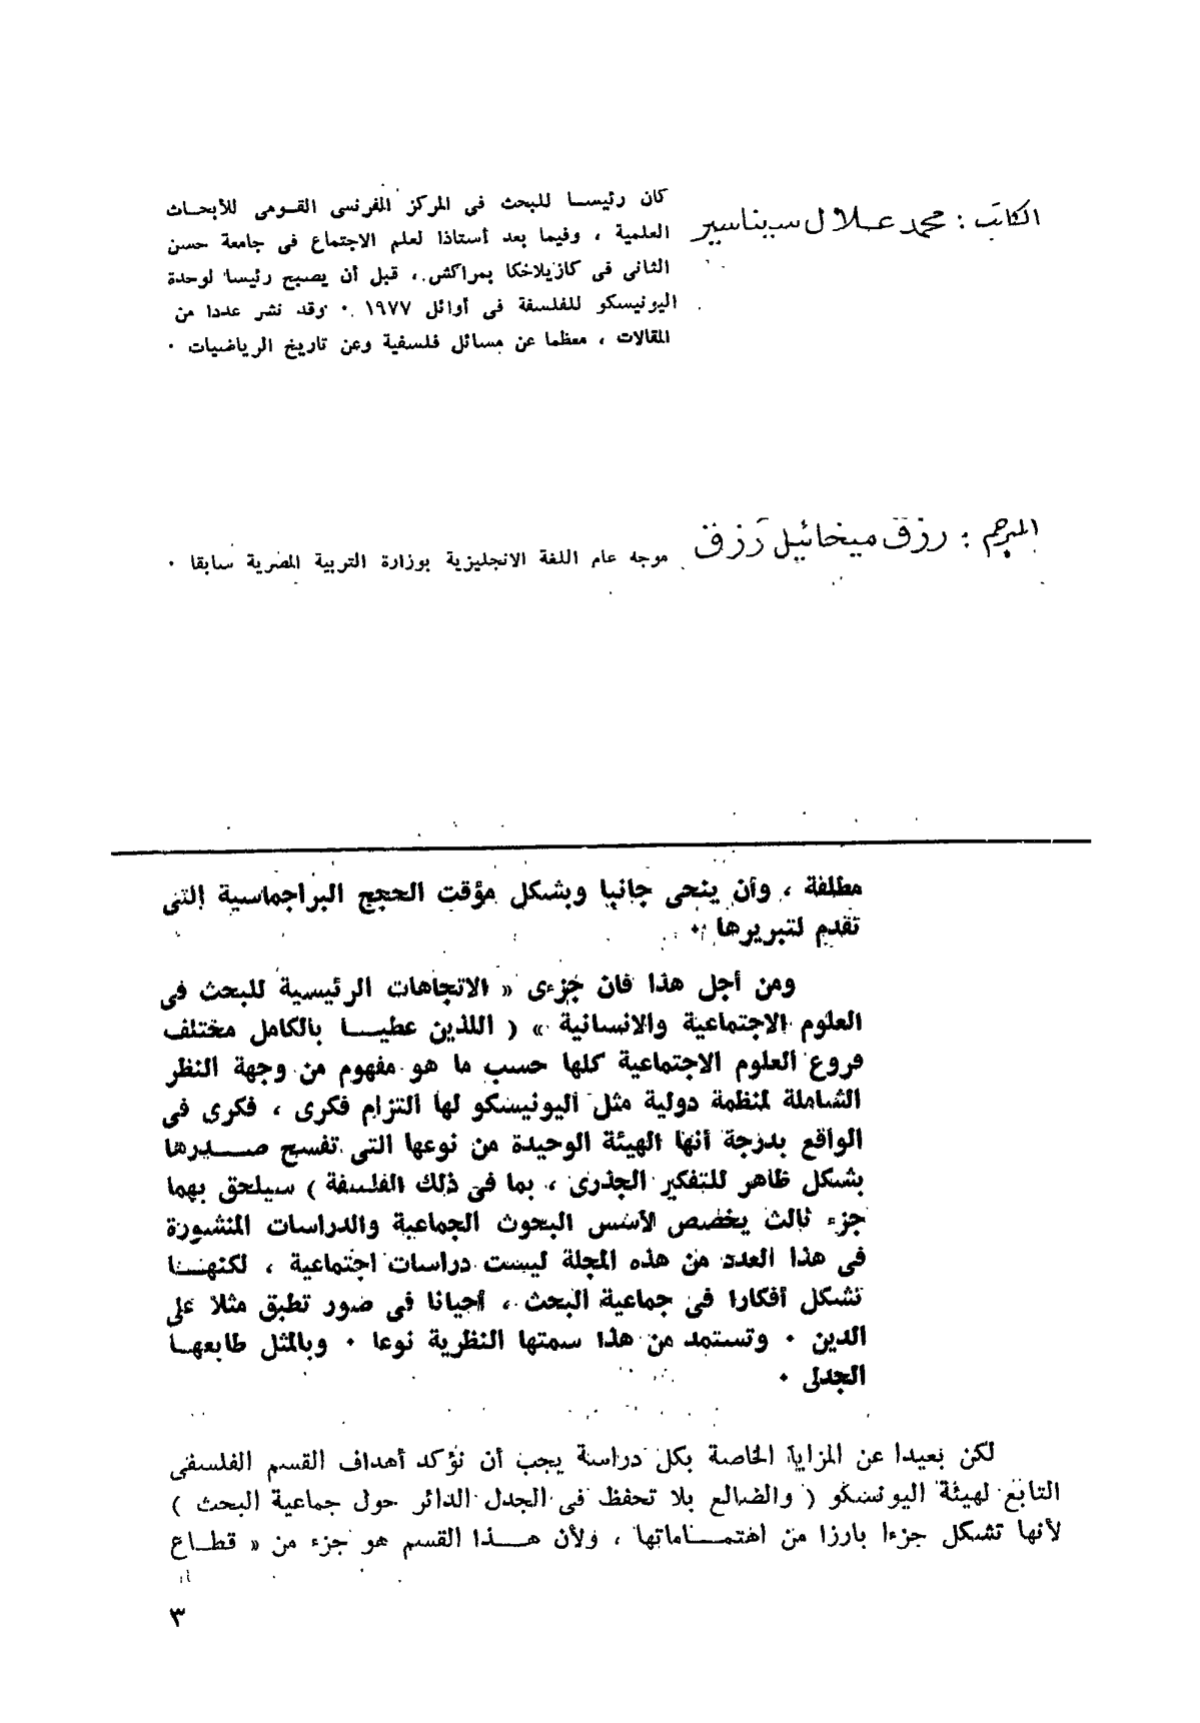 الكاتب : محمد علال سيناسير
كان رئيسا للبحث فى المركز الفرنسى القومى للأبحاث
العلمية ، وفيما بعد أستاذا لعلم الاجتماع فى جامعة حسن
الثانى فى كازبلانكا بمراكش ، قبل أن يصبح رئيسا لوحدة
اليونيسكو للفلسفة فى أوائل ١٩٧٧ . وقد نشر عددا من
المقالات ، معظما عن مسائل فلسفية وعن تاريخ الرياضيات .
المترجم : رزق ميخائيل رزق
موجه عام اللغة الانجليزية بوزارة التربية المصرية سابقا .
مطلقة ، وأن ينحى جانبا وبشكل مؤقت الحجج البراجماسية التى
تقدم لتبريرها .
ومن أجل هذا فان جزءى « الاتجاهات الرئيسية للبحث فى
العلوم الاجتماعية والانسانية » ( اللذين عطيا بالكامل مختلف
فروع العلوم الاجتماعية كلها حسب ما هو مفهوم من وجهة النظر
الشاملة لمنظمة دولية مثل اليونيسكو لها التزام فكرى ، فكرى فى
الواقع بدرجة أنها الهيئة الوحيدة من نوعها التى تفسح صدرها
بشكل ظاهر للتفكير الجذرى ، بما فى ذلك الفلسفة ) سيلحق بهما
جزء ثالث يخصص لأسس البحوث الجماعية والدراسات المنشورة
فى هذا العدد من هذه المجلة ليست دراسات اجتماعية ، لكنها
تشكل أفكارا فى جماعية البحث ، أحيانا فى صور تطبق مثلا على
الدين . وتستمد من هذا سمتها النظرية نوعا . وبالمثل طابعها
الجدلى .
لكن بعيدا عن المزايا الخاصة بكل دراسة يجب أن نؤكد أهداف القسم الفلسفى
التابع لهيئة اليونسكو ( والضالع بلا تحفظ فى الجدل الدائر حول جماعية البحث )
لأنها تشكل جزءا بارزا من اهتماماتها ، ولأن هذا القسم هو جزء من « قطاع
٣